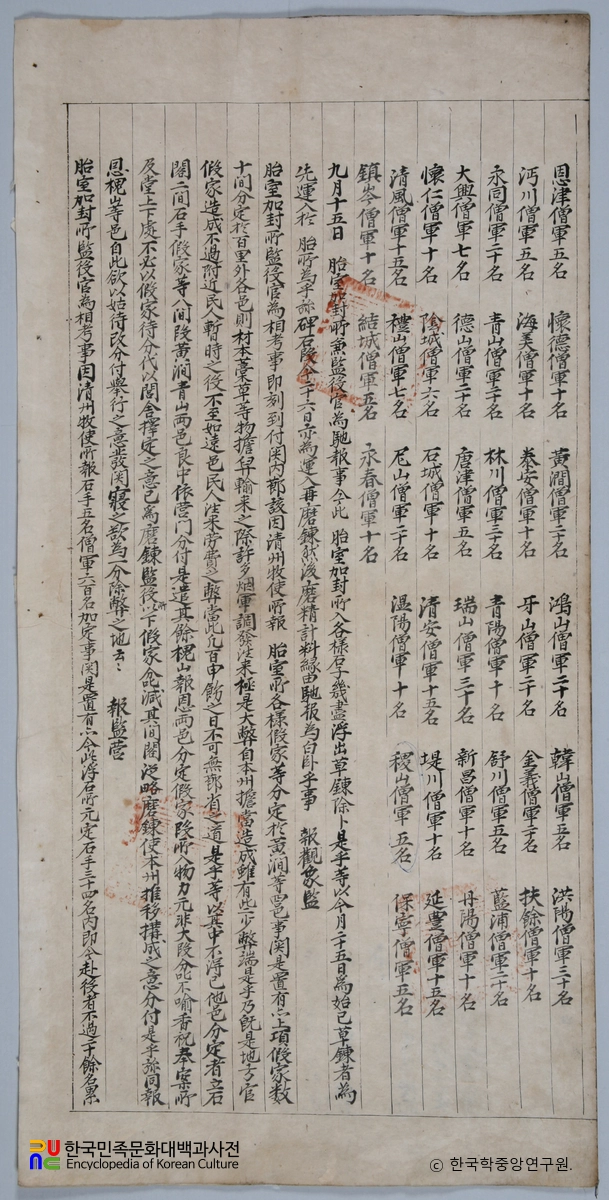 恩津僧軍五名 懷德僧軍十名 黃澗僧軍二十名 鴻山僧軍二十名 韓山僧軍五名 洪陽僧軍三十名
沔川僧軍五名 海美僧軍十名 泰安僧軍十名 牙山僧軍二十名 全義僧軍二名 扶餘僧軍十名
永同僧軍二十名 青山僧軍二十名 林川僧軍三十名 青陽僧軍十名 舒川僧軍五名 藍浦僧軍二十名
大興僧軍七名 德山僧軍二十名 唐津僧軍五名 瑞山僧軍三十名 新昌僧軍十名 丹陽僧軍十名
懷仁僧軍十名 陰城僧軍六名 石城僧軍十名 清安僧軍十五名 堤川僧軍十名 延豊僧軍十五名
清風僧軍十五名 禮山僧軍七名 尼山僧軍二十名 温陽僧軍十名 稷山僧軍五名 保寧僧軍五名
鎮岑僧軍十名 結城僧軍五名 永春僧軍十名
九月十五日 胎室加封所兼監役官為馳報事今此 胎室加封所入各樣石子幾盡浮出草鍊除卜是乎等以今月二十五日為始已草鍊者為
先運入於 胎所為乎旀碑石段今十六日亦為運入再磨鍊然後磨精計料緣由馳報為白臥乎事 報觀象監
胎室加封所監役官為相考事即刻到付関内節該因清州牧使所報 胎室所各樣假家等分定於黃澗等四邑事関是置有亦上項假家數
十間分定於百里外各邑則材木藁草等物擔舁輸来之際許多烟軍調發往来極是大弊自本州擔當造成雖有些少弊端是乎乃旣是地方官
假家造成不過附近民人暫時之役不至如遠邑民人往来所費之弊當此凡百申飭之日不可無 省之道是乎等以其中不得已他邑分定者立石
閣二間石手假家等八間段黃澗青山兩邑良中依營門分付是遣其餘槐山報恩兩邑分定假家段所入物力元非大段 不喻香祝奉安所
及堂上下處不必以假家待分代以閭舍擇定之意已為磨鍊監役所以下假家 減其間閣從略磨鍊使本州推移搆成之意分付是乎旀同報
恩槐山等邑自此欲以姑待改分付擧行之意 関寢之欲為一分除弊之地云云 報監營
胎室加封所監役官為相考事因清州牧使所報石手五名僧軍六百名加定事関是置有亦今此浮石所元定石手三十四名内即今赴役者不過二十餘名累
한국민족문화대백과사전
Encyclopedia of Korean Culture
ⓒ 한국학중앙연구원.